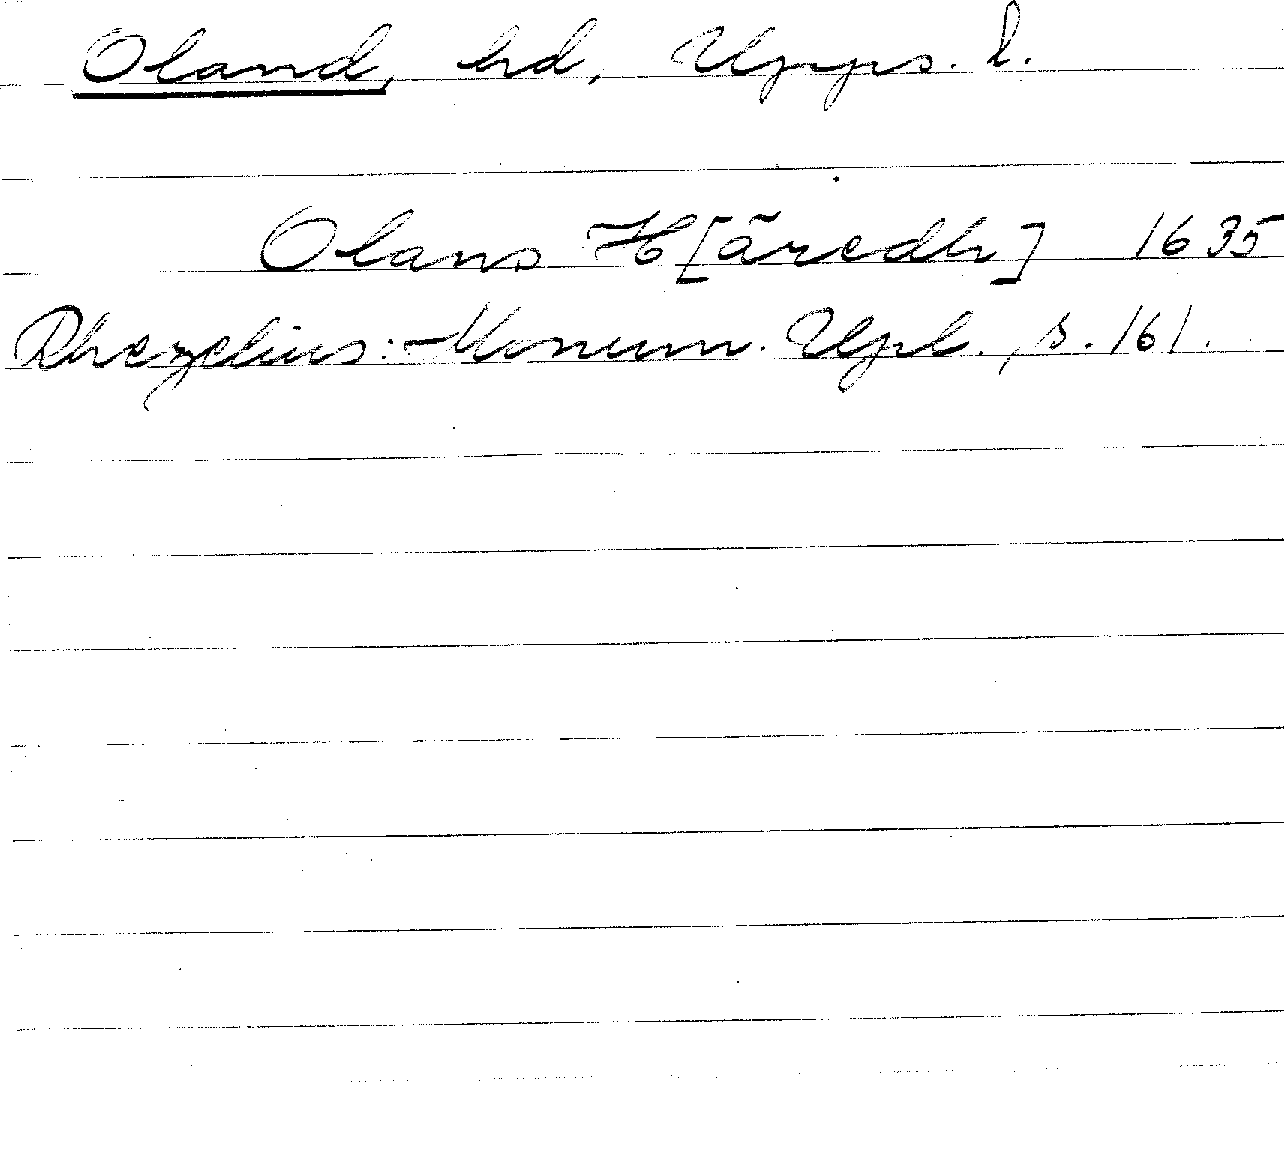 Oland, hd, Upps. l.
Olans H[äredh] 1635
Rhezelius: Monum. Upl., s. 161.